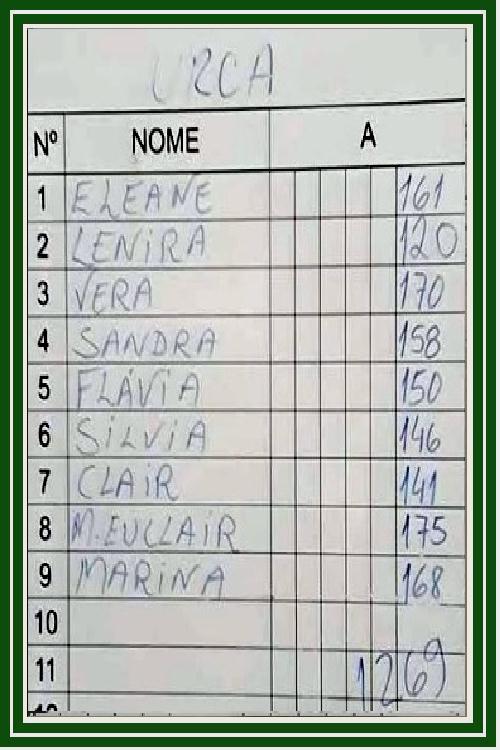 URCA
Nº NOME A
1 ELEANE 161
2 LENIRA 120
3 VERA 170
4 SANDRA 158
5 FLÁVIA 150
6 SILVIA 146
7 CLAIR 141
8 M.EUCLAIR 175
9 MARINA 168
10
11 1269